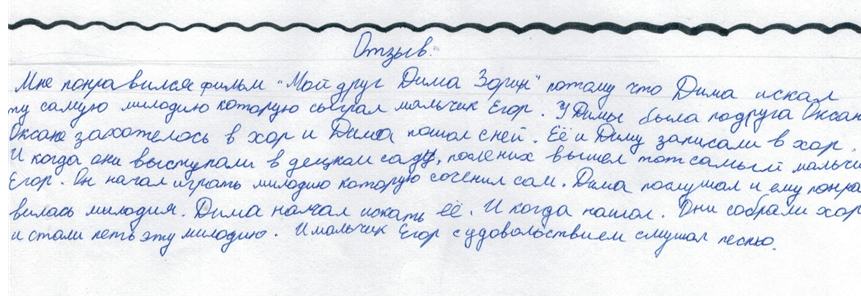 Отзыв.
Мне понравился фильм "Мой друг Дима Зорин" потому что Дима искал
ту самую милодию которую сыграл мальчик Егор. У Димы была подруга Оксан
Оксане захотелось в хор и Дима пошол с ней. Её и Диму записали в хор.
И когда они выступали в децком саду, после них вышел тот самый мальчи
Егор. Он начал играть милодию которую соченил сам. Дима послушал и ему понра
вилась милодия. Дима начал искать её. И когда нашол. Они собрали хор
и стали петь эту милодию. И мальчик Егор с удовольствием слушал песню.